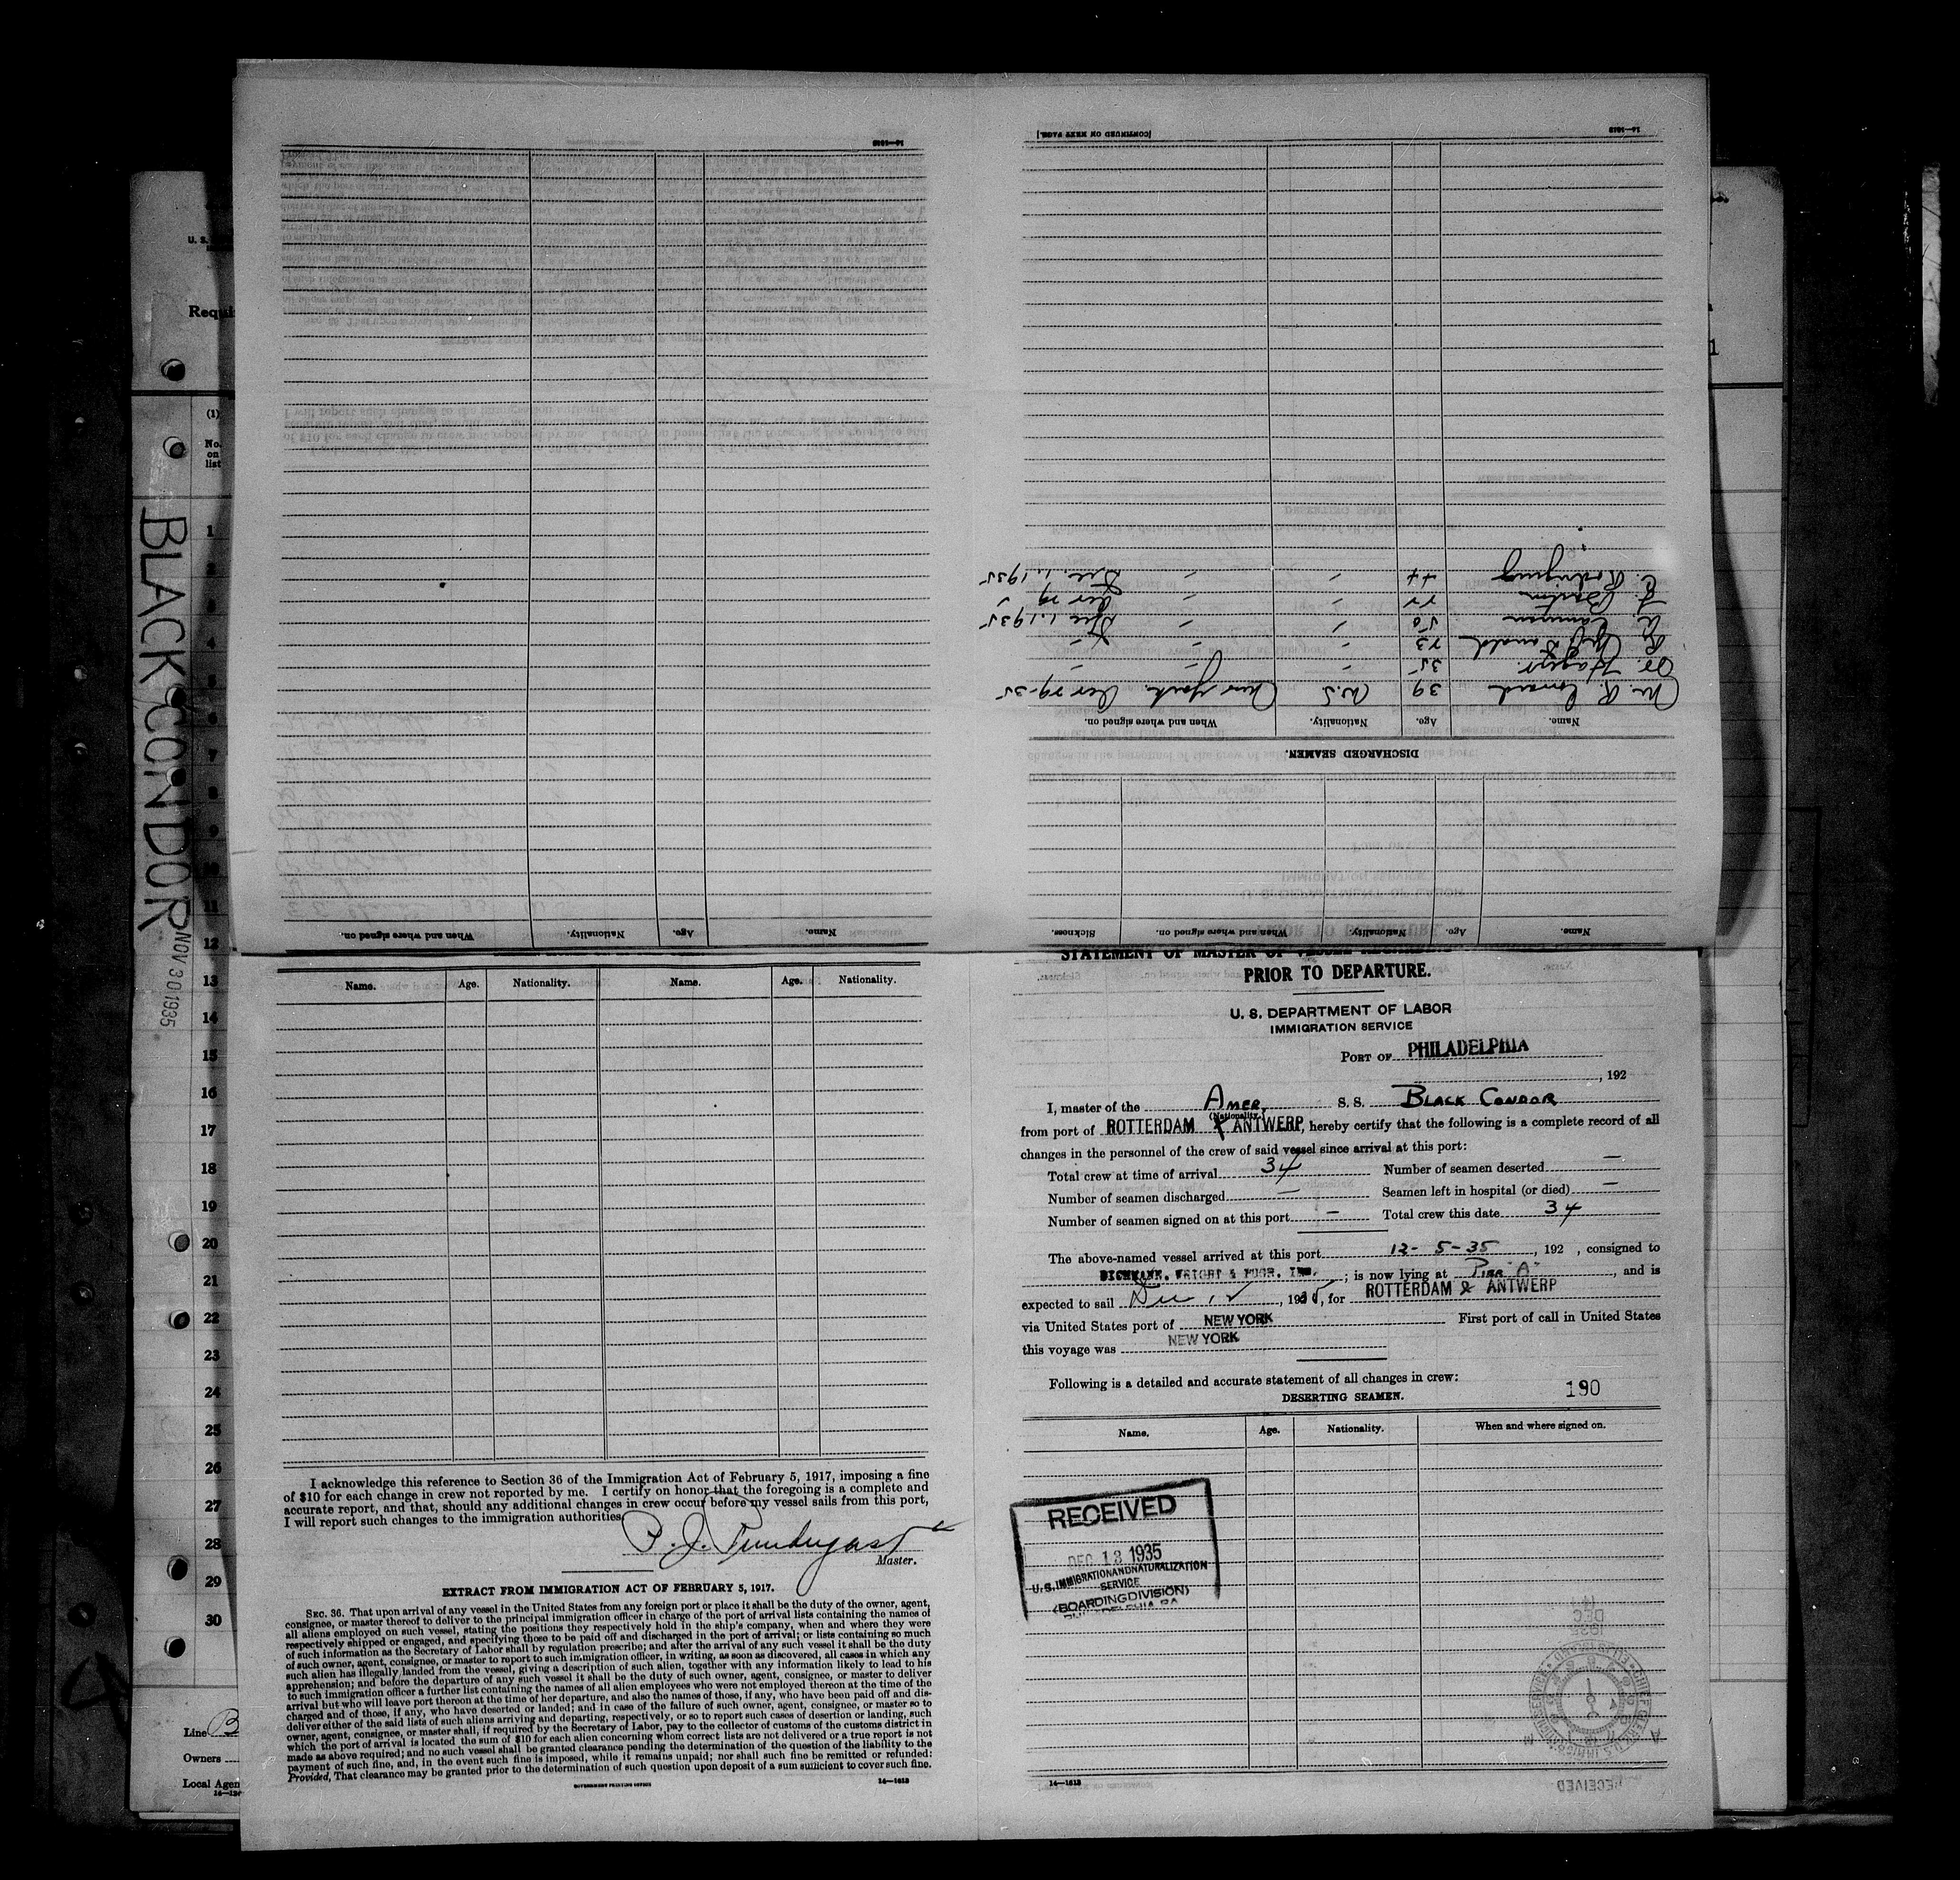 BLACK CONDOR
NOV 30 1935
U. S.
(1)
No.
on
list
1
4
5
6
7
8
9
10
11
12
13
14
15
16
17
18
19
20
21
22
23
24
25
26
27
28
29
30
Line B
Owners
Local Agen
14—1613
[CONTINUED ON NEXT PAGE.]
14—1613
DISCHARGED SEAMEN.
Name. Age. Nationality. When and where signed on.
39 U.S New York. Nov 29-35
35
L. 23
50 Dec 1. 1935
Nov 29
C. Rodriguez 44 Dec. 1. 1935
Name. Age. Nationality. When and where signed on. Sickness.
Name. Age. Nationality. When and where signed on.
Name. Age. Nationality. Name. Age. Nationality.
I acknowledge this reference to Section 36 of the Immigration Act of February 5, 1917, imposing a fine
of $10 for each change in crew not reported by me. I certify on honor that the foregoing is a complete and
accurate report, and that, should any additional changes in crew occur before my vessel sails from this port,
I will report such changes to the immigration authorities.
P. J. Pendergast
Master.
EXTRACT FROM IMMIGRATION ACT OF FEBRUARY 5, 1917.
SEC. 36. That upon arrival of any vessel in the United States from any foreign port or place it shall be the duty of the owner, agent,
consignee, or master thereof to deliver to the principal immigration officer in charge of the port of arrival lists containing the names of
all aliens employed on such vessel, stating the positions they respectively hold in the ship's company, when and where they were
respectively shipped or engaged, and specifying those to be paid off and discharged in the port of arrival; or lists containing so much
of such information as the Secretary of Labor shall by regulation prescribe; and after the arrival of any such vessel it shall be the duty
of such owner, agent, consignee, or master to report to such immigration officer, in writing, as soon as discovered, all cases in which any
such alien has illegally landed from the vessel, giving a description of such alien, together with any information likely to lead to his
apprehension; and before the departure of any such vessel it shall be the duty of such owner, agent, consignee, or master to deliver
to such immigration officer a further list containing the names of all alien employees who were not employed thereon at the time of the
arrival but who will leave port thereon at the time of her departure, and also the names of those, if any, who have been paid off and dis-
charged and of those, if any, who have deserted or landed; and in case of the failure of such owner, agent, consignee, or master so to
deliver either of the said lists of such aliens arriving and departing, respectively, or so to report such cases of desertion or landing, such
owner, agent, consignee, or master shall, if required by the Secretary of Labor, pay to the collector of customs of the customs district in
which the port of arrival is located the sum of $10 for each alien concerning whom correct lists are not delivered or a true report is not
made as above required; and no such vessel shall be granted clearance pending the determination of the question of the liability to the
payment of such fine, and, in the event such fine is imposed, while it remains unpaid; nor shall such fine be remitted or refunded:
Provided, That clearance may be granted prior to the determination of such question upon deposit of a sum sufficient to cover such fine.
GOVERNMENT PRINTING OFFICE
14—1613
STATEMENT OF MASTER OF VESSEL
PRIOR TO DEPARTURE.
U. S. DEPARTMENT OF LABOR
IMMIGRATION SERVICE
PORT OF PHILADELPHIA
, 192
I, master of the AMER. S. S. BLACK CONDOR
(Nationality.)
from port of ROTTERDAM & ANTWERP, hereby certify that the following is a complete record of all
changes in the personnel of the crew of said vessel since arrival at this port:
Total crew at time of arrival 34 Number of seamen deserted —
Number of seamen discharged — Seamen left in hospital (or died) —
Number of seamen signed on at this port — Total crew this date 34
The above-named vessel arrived at this port 12-5-35, 192 , consigned to
DICHMANN, WRIGHT & PUGH, INC. ; is now lying at PIER "A" , and is
expected to sail Dec 12, 1935, for ROTTERDAM & ANTWERP
via United States port of NEW YORK First port of call in United States
this voyage was NEW YORK
Following is a detailed and accurate statement of all changes in crew:
DESERTING SEAMEN.
190
Name. Age. Nationality. When and where signed on.
RECEIVED
DEC 13 1935
U. S. IMMIGRATION AND NATURALIZATION
SERVICE
(BOARDING DIVISION)
PHILADELPHIA PA
14—1613
RECEIVED